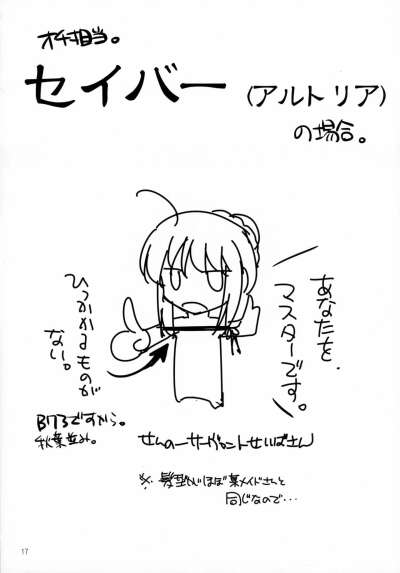 オチ担当。
セイバー（アルトリア）
の場合。
あなたを、
マスターです。
ひっかかるものが
ない。
B73ですから。
秋葉並み。
せんのーサーヴァントせいばさん
※髪型がほぼ某メイドさんと
同じなので…
17